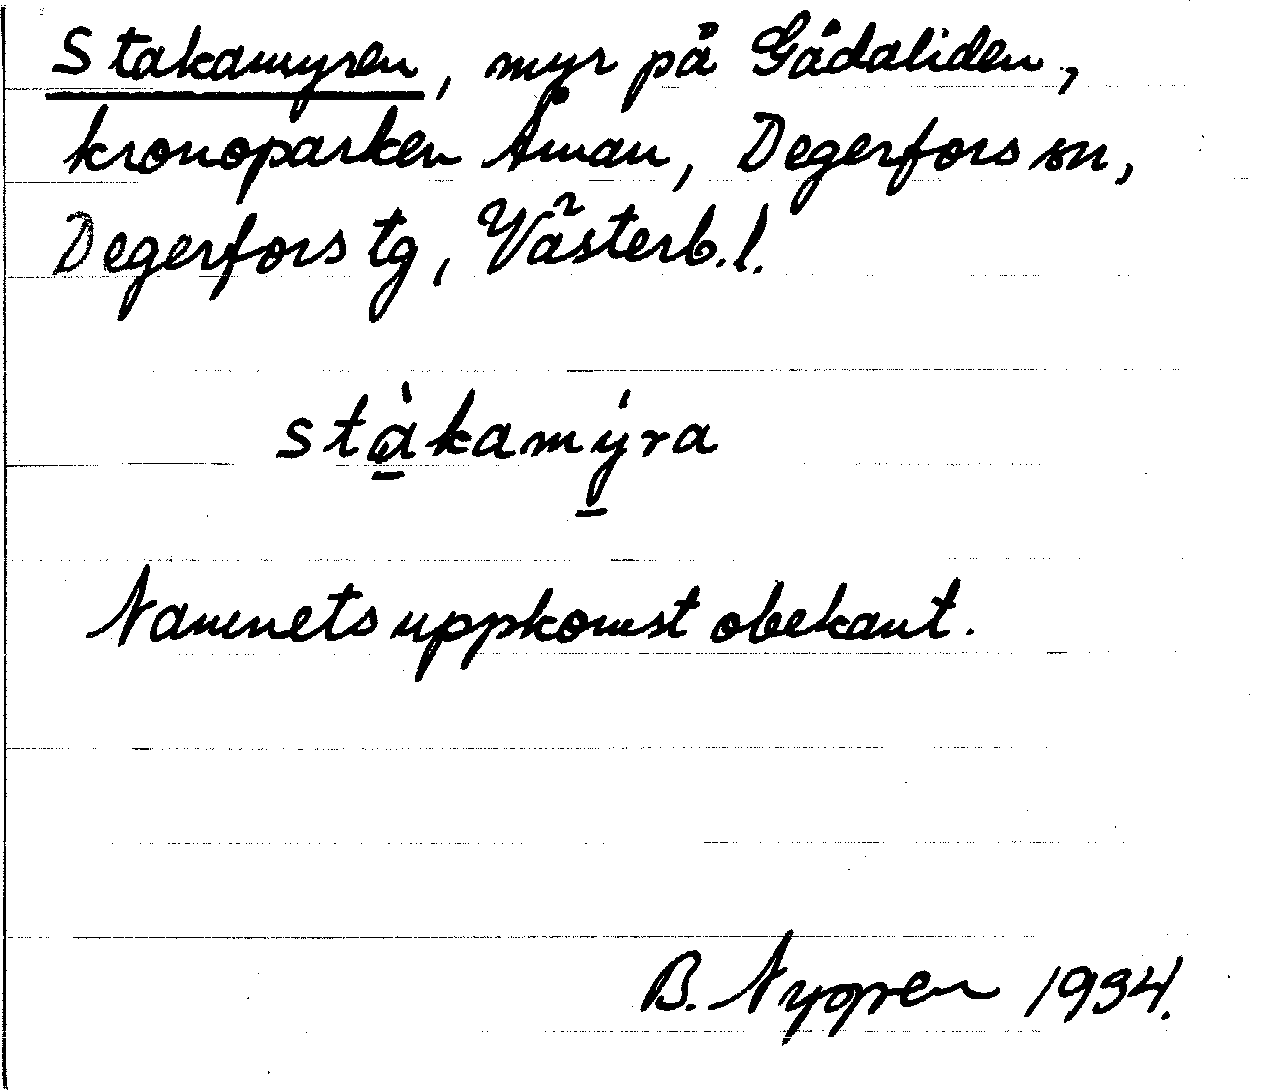 Stakamyren, myr på Gådaliden,
kronoparken Åman, Degerfors sn,
Degerfors tg, Västerb. l.
stàkamýra
Namnets uppkomst obekant.
B. Nygren 1934.